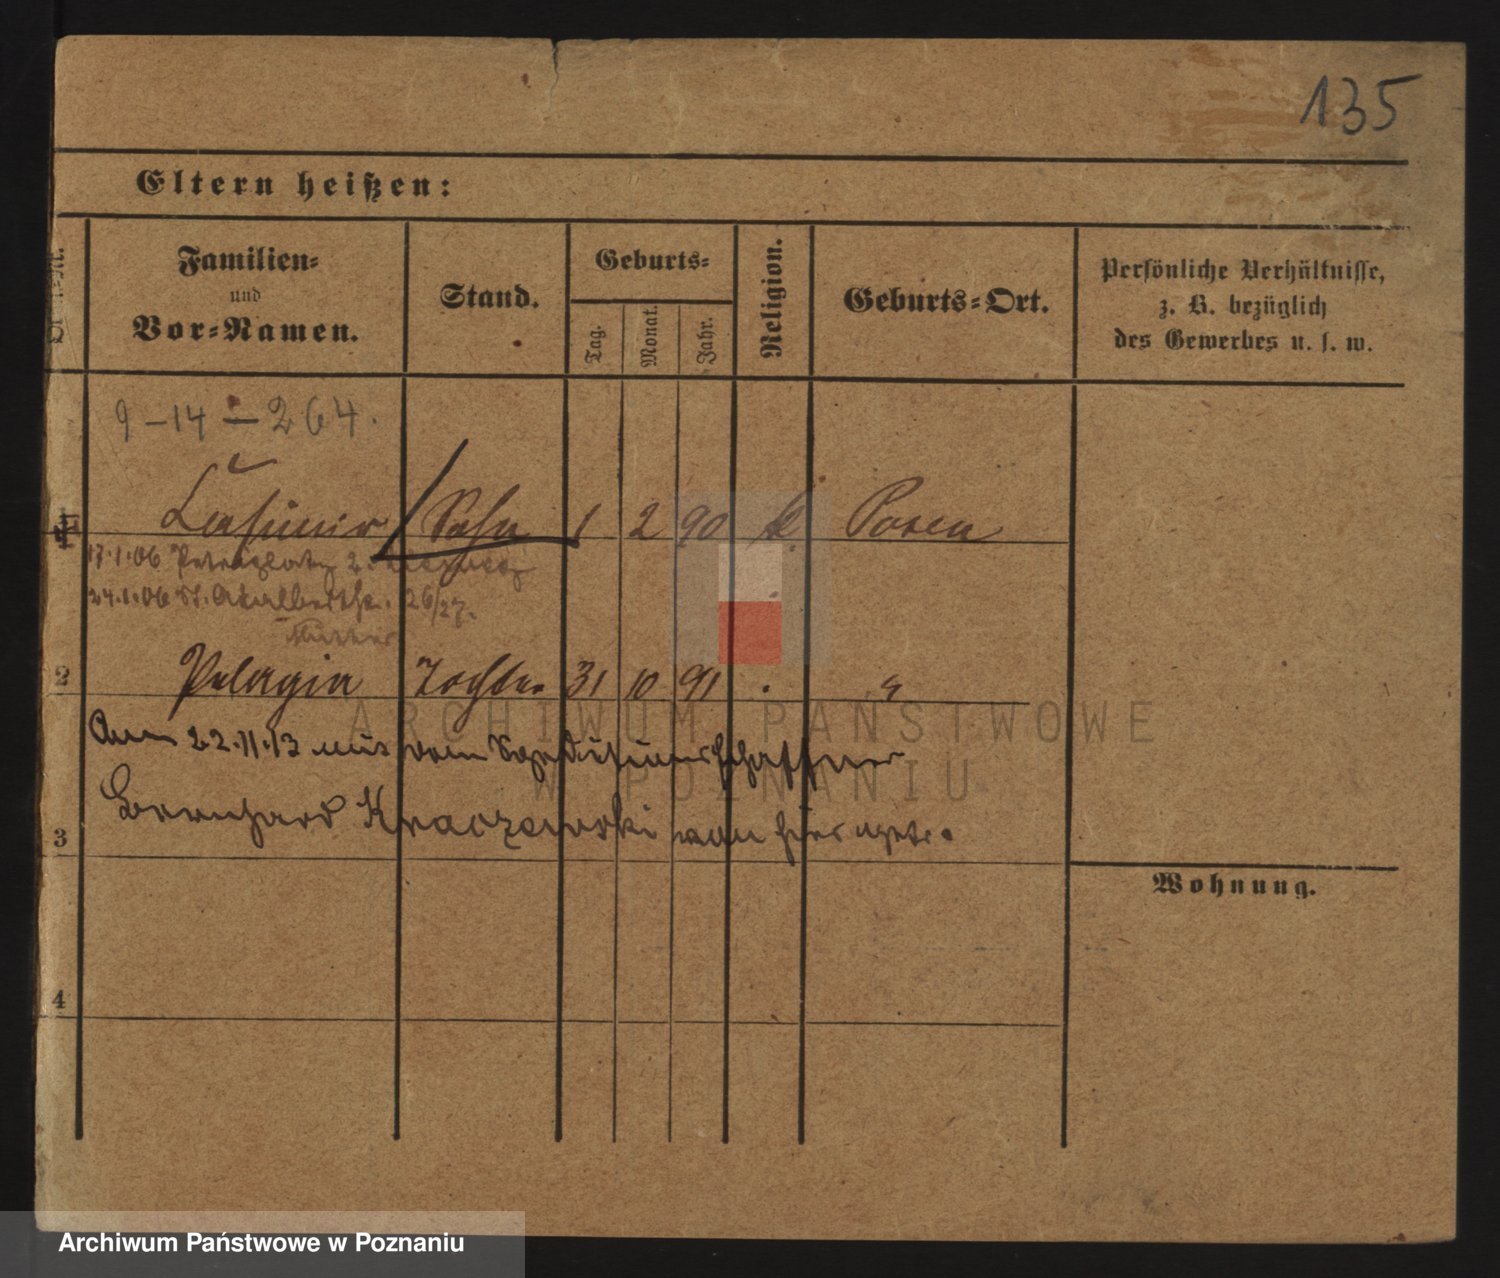 135
Eltern heißen:
Familien- und Vor-Namen.
Stand.
Geburts-
Tag.
Monat.
Jahr.
Religion.
Geburts-Ort.
Persönliche Verhältnisse,
z. B. bezüglich
des Gewerbes u. s. w.
9-14-264.
Casimir Sohn 1 2 90 k Posen
17.1.06 Petriplatz 2.
24.1.06 St. Adalbertstr. 26/27.
Mutter
2 Pelagia Tochter 31 10 91 . "
Am 22.11.13 mit dem Speditionsschaffner
3 Bernhard Kraczewski von hier
Wohnung.
4
ARCHIWUM PAŃSTWOWE
W POZNANIU
Archiwum Państwowe w Poznaniu